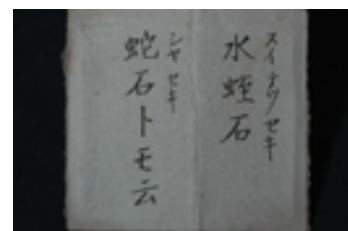 スイテツセキ
水蛭石
シヤセキ
蛇石トモ云